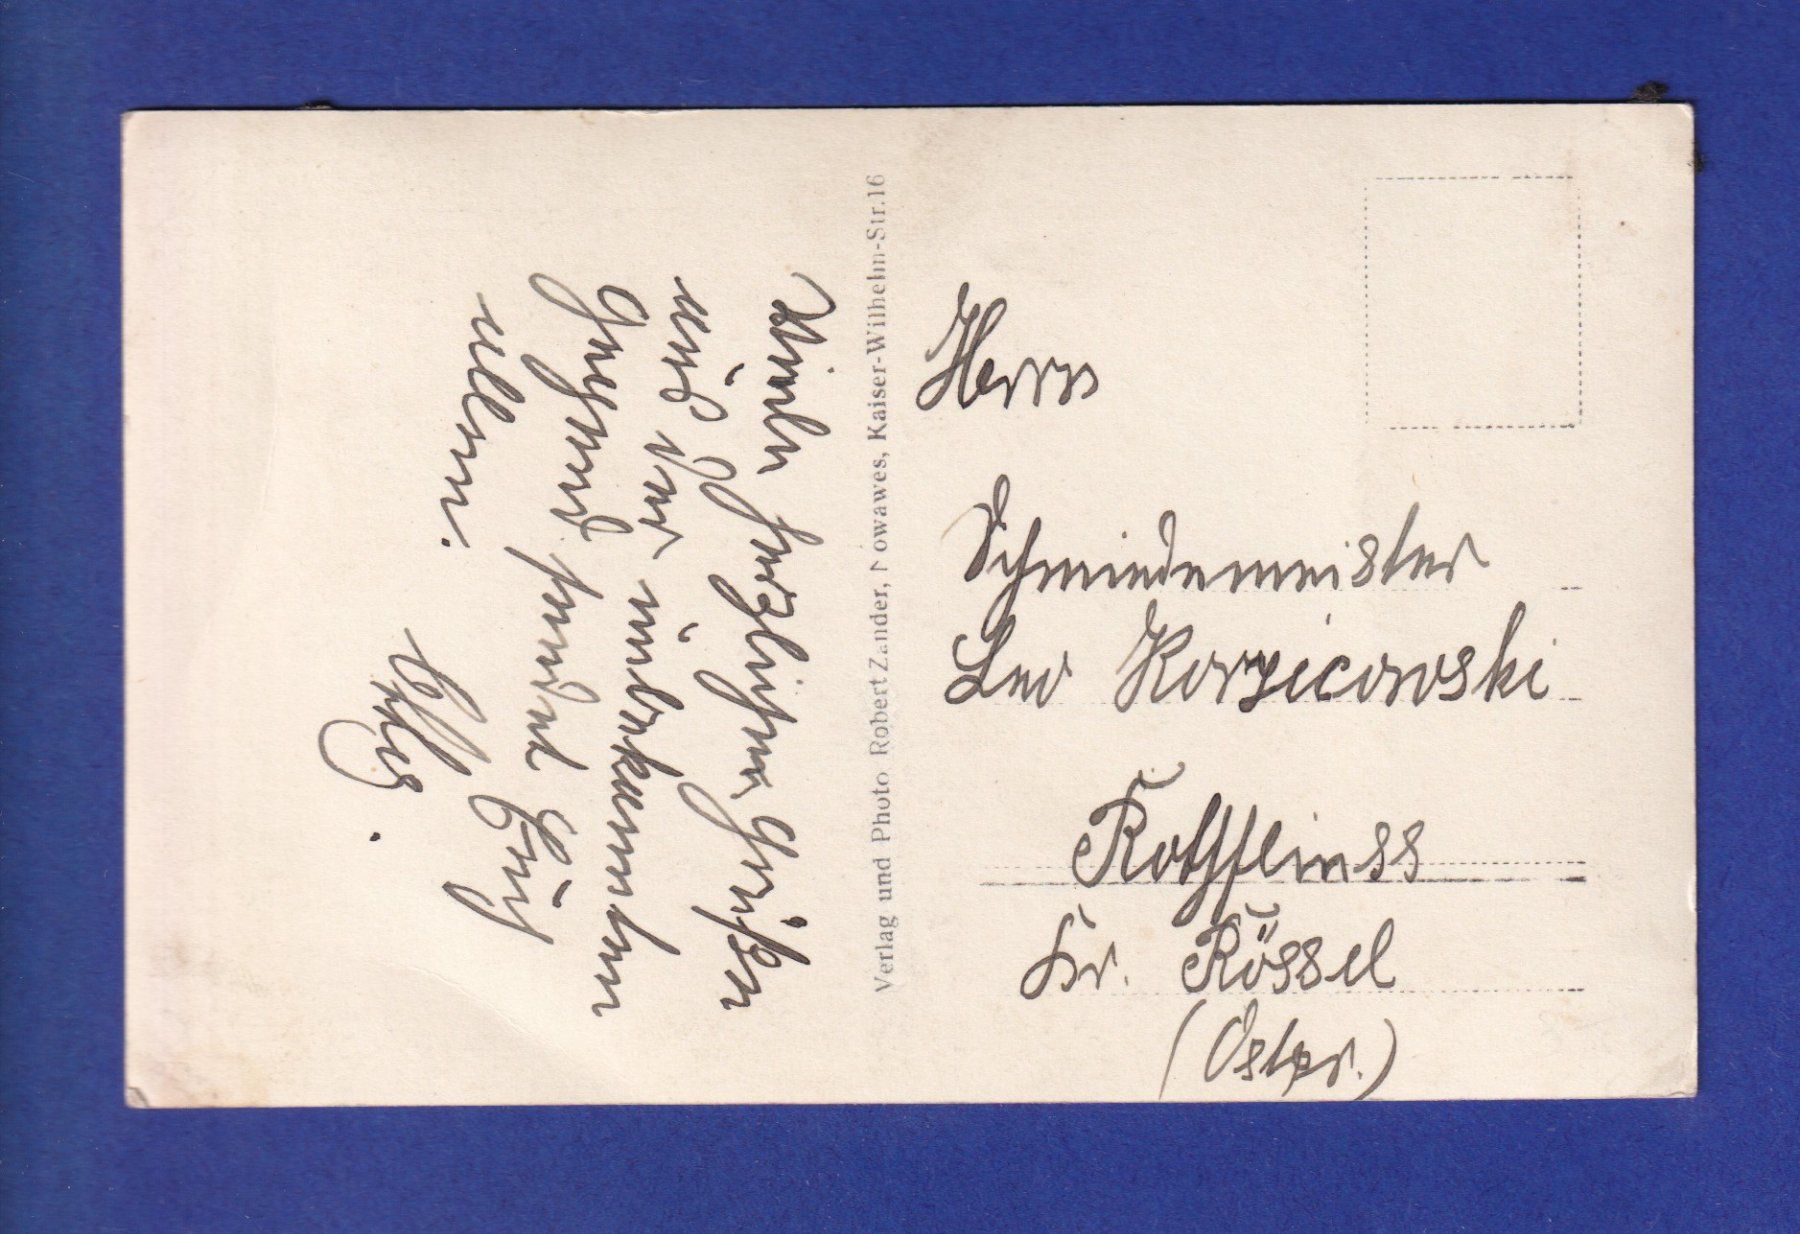 Viele herzlichen Grüßen
aus der unbekannten
Gegend sendet Euch
allen.
Verlag und Photo Robert Zander, Nowawes, Kaiser-Wilhelm-Str. 16
Herrn
Schmiedemeister
Leo Korzicowski
Rothfliess
Kr. Rössel
(Ostpr.)